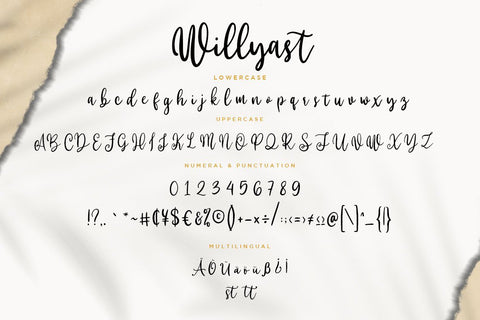 Willyast
LOWERCASE
a b c d e f g h i j k l m n o p q r s t u v w x y z
UPPERCASE
A B C D E F G H I J K L M N O P Q R S T U V W X Y Z
NUMERAL & PUNCTUATION
0 1 2 3 4 5 6 7 8 9
!?,. ` " ~ # ₵ ¥ $ € & % © () + - × ÷ / : ; < = > ≠ Ω @ [ \ ] ^ _ { | }
MULTILINGUAL
Á Ö Ü á ö ü ß
st tt